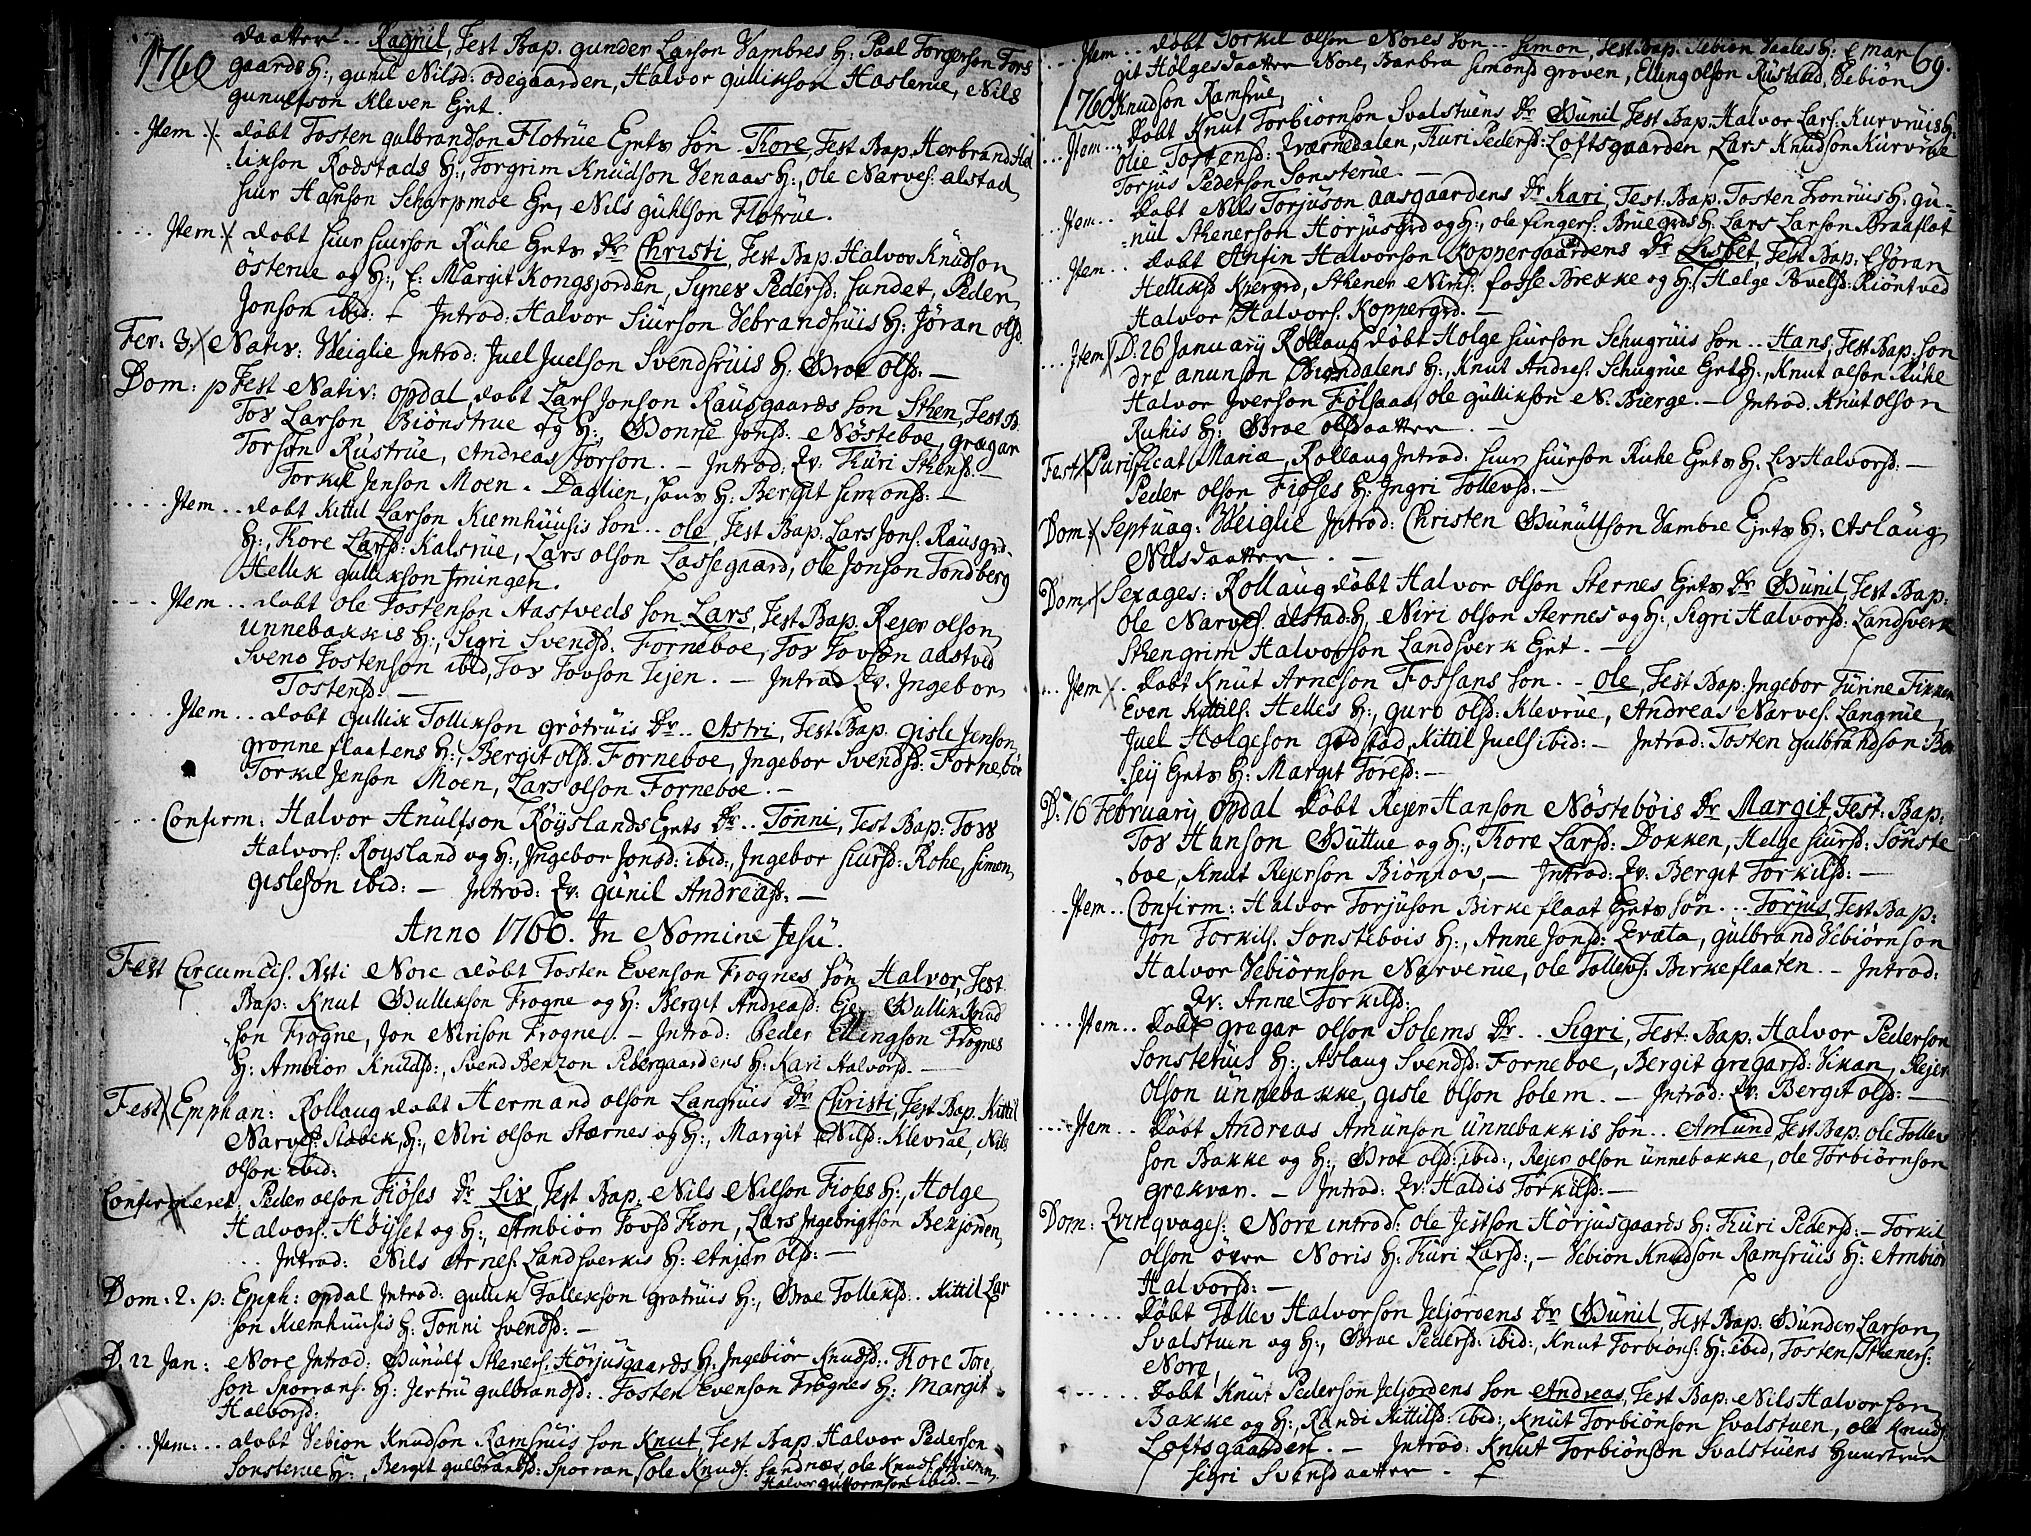 1760
daatter .. Ragnil, Test Bap. gunder Larson Vambres H: Paal Torgerson Fors
gaards H:, gunil Nilsd: odegaarden, Halvor gullikson Haslerue, Nils
gunulfson Kleven Egt.
Item .. døbt Tosten gulbrandson Flotrue Egts søn Tore, Test Bap. Herbrand Hel
likson Rodstads H:, Torgrim Knudson Venaas H:, Ole Narves: alstad,
Siur Hanson Scharpmoe Eg, Nils guhlson Flotrue.
Item døbt Siur Siurson Ruhe Egts Dr Christi, Test Bap. Halvor Knudson
österue og H:, E: Margit Kongsjorden, Synev Pedersd: Sundet, Peder
Jonson ibid: – Introd: Halvor Siurson Vebrandsruis H: Jøran olsd
Fer: 3. Nativ: Veiglie Introd: Juel Juelson Svendsruis H: Groe olsd: –
Dom: p Fest Nativ: opdal døbt Lars Jonson Rausgaards søn Sthen, Test B.
Tov Larson Biönstrue og H:, Gonne Jonsd: Nösteboe, gregar
Torson Rustrue, Andreas Torson. – Introd: Qv: Turi Sthensd: –
Torkil Jenson Moen – Daglien, hans H: Bergit Simonsd: –
Item .. døbt Kittil Larson Kiemhuusis søn .. ole, Test Bap. Lars Jons: Rausgrd.
H:, Tore Larsd: Kalsrue, Lars olson Lassegaard, Ole Jonson Tondberg
Hellik gullikson Imingen.
Item .. døbt Ole Tostenson Aastveds søn Lars, Test Bap. Rejer olson
unnebakkis H:, Sigri Svendsd: Forneboe, Tov Tovson aastved
Svend Tostenson ibid, Tov Tovson Tejen. – Introd Qv. Ingebor
Tostensd: –
Item .. døbt gullik Tollikson grötruis Dr .. Astri, Test Bap. gisle Jenson
gronneflaatens H:, Bergit olsd: Forneboe, Ingebor Svendsd: Forneboe
Torkil Jenson Moen, Lars olson Forneboe. –
Confirm: Halvor Anulfson Röyslands Egts Dr .. Tonni, Test Bap: Tov
Halvors: Roysland og H:, Ingebor Jonsd: ibid:, Ingebor Siursd: Rohe, Simon
gisleson ibid: – Introd: Qv: Gunil Andreasd: –
Anno 1760. In Nomine Jesu.
Fest Circumcis. Xsti Nore døbt Tosten Evenson Frognes søn Halvor, Test
Bap: Knut Gullikson Frogne og H: Bergit Andreasd: Eje Gullik Knud
son Frogne, Jon Nerison Frogne. – Introd: Peder Ellingson Frognes
H: Ambior Knudsd:, Svend Benzon Sebergaardens H: Kari Halvorsd. –
Fest Epphan: Rollaug døbt Hermand olson Langruis Dr Christi, Test Bap. Kittil
Narves: Slobek, H:, Niri olson Stærnes og H:, Margit Nilsd: Klevrue, Nils
olson ibid:
Confirmeret, Peder olson Fiöses Dr Liv, Test Bap. Nils Nilson Fioses H:, Holge
Halvors: Höyset og H:, Ambior Tovsd Kon, Lars Ingebrigtson Bekjorden,
Introd: Nils Arnes: Landsverkis H: Anjer olsd: –
Dom: 2. p: Epph: opdal Introd: gullik Tollikson grotruis H:, Groe Tolliksd: Kittil Lar
son Kiemhuusis H: Tonni Svendsd: –
D. 22 Jan: Nore Introd: Gunulf Stheners: Hörjusgaards H: Ingebiör Knudsd: Tore Tore
son Sporrans: H: Jertru gulbrandsd: Tosten Evenson Frognes H: Margit
Halvorsd:
Item: .. døbt Vebion Knudson Ramsruis søn Knut, Test Bap. Halvor Pederson
Sonsterue H:, Bergit gulbrandsd: Sporran, ole Knuds: Sandnæs, ole Knuds:
Halvor guttormson ibid. –
69.
1760
Item .. døbt Torkil olson Nores søn .. Simon, Test Bap. Sebion Vaales H: E Mar
git Holgesdaatter Nore, Barbra Simonsd groven, Elling olson Rustaad, Vebion
Knudson Ramsrue,
Item .. døbt Knut Torbiörnson Svalstuens Dr Gunil, Test Bap. Halvor Lars: Kurvruis H:
Olie Tostensd: Qværnedalen, Kuri Pedersd: Loftsgaarden, Lars Knudson Kurvrue
Torjus Pederson Sonsterue. –
Item .. døbt Nils Torjuson aasgaardens Dr Kari, Test: Bap. Tosten Tronruis H: gu-
nul Sthenerson Horjusgrd og H:, ole fingers: Bruegrds H: Lars Larson Braaflat
Item .. døbt Anfin Halvorson Koppergaardens Dr Lisbet, Test Bap: E Jöran
Helliksd Kjergrd, Sthener Niris: fosse Brekke og H: Helge Povelsd: Kiöntved
Halvor Halvors: Koppergrd. –
Item D: 26 January Rollaug døbt Holge Siurson Schugruis søn .. Hans, Test Bap: Son
dre anunson Giondalens H:, Knut Andres: Schugrue Egts H:, Knut olson Ruhe
Halvor Iverson Fölsaas, ole gullikson N. Bierge. – Introd: Knut olson
Ruhis H: Groe olsdaatter. –
Fest Purificat: Mariæ, Rollaug Introd: Siur Siurson Ruhe Egts H: Liv Halvorsd: –
Peder olson Fioses H: Ingri Tollevsd: –
Dom: Septuag: Veiglie Introd: Christen Gunulfson Vambre Egts H: Aslaug
Nilsdaatter. –
Dom: Sexages: Rollaug døbt Halvor olson Sternes Egts Dr Gunil, Test Bap:
Ole Narves: alstad H:, Niri olson Sternes og H:, Sigri Halvorsd: Landsverk
Sthengrim Halvorson Landsverk Egt. –
Item .. døbt Knut Arneson Fossans søn .. Ole, Test Bap: Ingebor Turine Fikken
Even Kittils: Helles H:, guro olsd: Klevrue, Andreas Narves: Langrue,
Juel Holgeson godstad, Kittil Juels ibid: – Introd: Tosten gulbrandson Bor
seij Egts H: Margit Toresd: –
D: 16 February opdal døbt Rejer Hanson Nöstebois Dr Margit, Test: Bap:
Tov Hanson Guttue og H:, Tore Larsd: Dokken, Helge Siursd: Sonste
boe, Knut Rejerson Biönnov, – Introd: Qv. Bergit Torkilsd: –
Item .. Confirm: Halvor Torjuson Birkeflaat Egts søn .. Torjus, Test Bap:
Jon Torkils: Sonstebois H:, Anne Jonsd: Qvæta, gulbrand Vebiörnson
Halvor Vebiörnson Narverue, ole Tollevs: Birkeflaaten. – Introd:
Qv: Anne Torkilsd:
Item .. døbt gregar olson Solems Dr .. Sigri, Test: Bap. Halvor Pederson
Sonsteruis H:, Aslaug Svendsd: Forneboe, Bergit gregarsd: Vikan, Rejer
Olson unnebakke, gisle olson Solem. – Introd: Qv: Bergit olsd: –
Item .. Døbt Andreas Amunson unnebakkis søn .. Amund, Test Bap: ole Tollev
son Bakke og H:, Groe olsd: ibid:, Rejer olson unnebakke, ole Torbiörnson
grekvar. – Introd: Qv: Haldis Torkilsd: –
Dom: Qvinqvages: Nore introd: ole Jestson Hörjusgaards H: Turi Pedersd: – Torkil
olson över Noris H: Turi Larsd:, – Vebion Knudson Ramsruis H: Ambiör
Halvorsd: –
døbt Tollev Halvorson Jeljordens Dr Gunil, Test Bap: Gunder Larson
Svalstuen og H:, Groe Pedersd: ibid:, Knut Torbiöns: H: ibid, Tosten Stheners:
Nore,
døbt Knut Pederson Jeljordens søn Andreas, Test Bap: Nils Halvorson
Bakke og H:, Randi Kittilsd: ibid:, Knut Torbiönson Svalstuen, ole Knuds:
Loftsgaarden. – Introd: Knut Torbiönson Svalstuens Huustrue
Sigri Svensdaatter. –